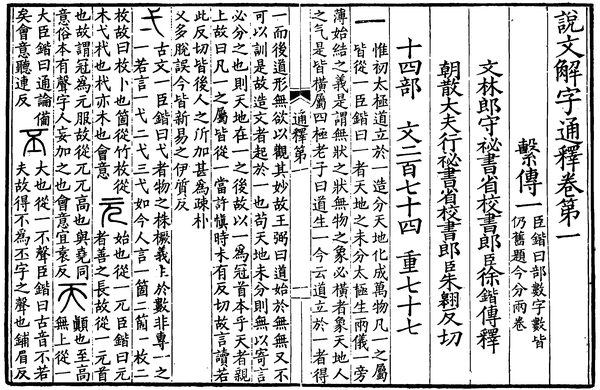 說文解字通釋卷第一
繫傳一
臣鍇曰部數字數皆
仍舊題今分兩卷
文林郎守祕書省校書郎臣徐鍇傳釋
朝散大夫行祕書省校書郎臣朱翱反切
十四部 文二百七十四 重七十七
一 惟初太極道立於一造分天地化成萬物凡一之屬
皆從一臣鍇曰一者天地之未分太極生兩儀一旁
薄始結之義是謂無狀之狀無物之象必橫者象天地人
之气是皆橫屬四極老子曰道生一今云道立於一者得
通釋第一
一
一而後道形無欲以觀其妙故王弼曰道始於無無又不
可以訓是故造文者起於一也苟天地未分則無以寄言
必分之也則天地在一之後故以一為冠首本乎天者親
上故曰凡一之屬皆從一當許慎時未有反切故言讀若
此反切皆後人之所加甚為疎朴
又多脫誤今皆新易之伊質反
弌 古文一臣鍇曰弋者物之株橛義上於數非專一之
一若言一弋二弋三弋如今人言一箇二箇一枚二
枚故曰枚卜也箇從竹枚從
木弋杙也杙亦木也會意
元 始也從一兀臣鍇曰元
者善之長故從一元首
也故謂冠為元服故從兀兀高也與堯同
意俗本有聲字人妄加之也會意宜袁反
天 顛也至高
無上從一
大臣鍇曰通論備
矣會意聽連反
丕 大也從一不聲臣鍇曰古音不若
夫故得不為丕字之聲也鋪眉反